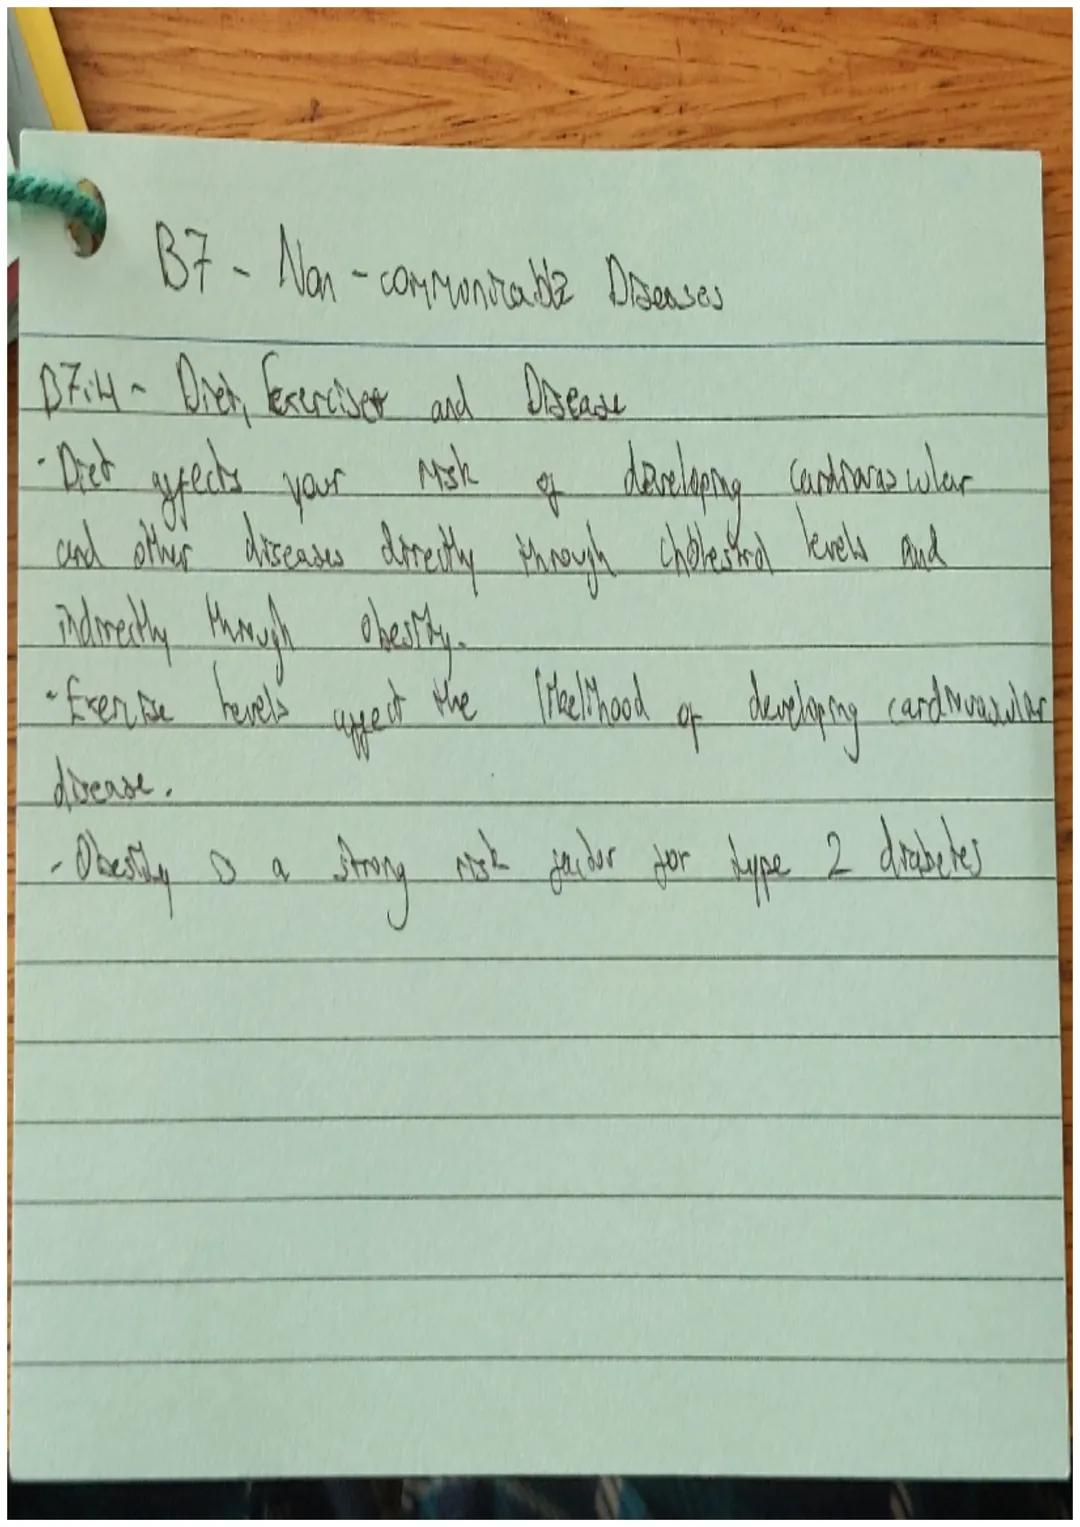 B7 - Non-communicable Diseases
B7.4 - Diet, Exercise and Disease
· Diet affects your risk of developing cardiovascular
and other diseases directly through cholestrol levels and
indirectly through obesity.
· Exercise levels affect the likelihood of developing cardiovascular
disease.
- Obesity is a strong risk factor for type 2 diabetes